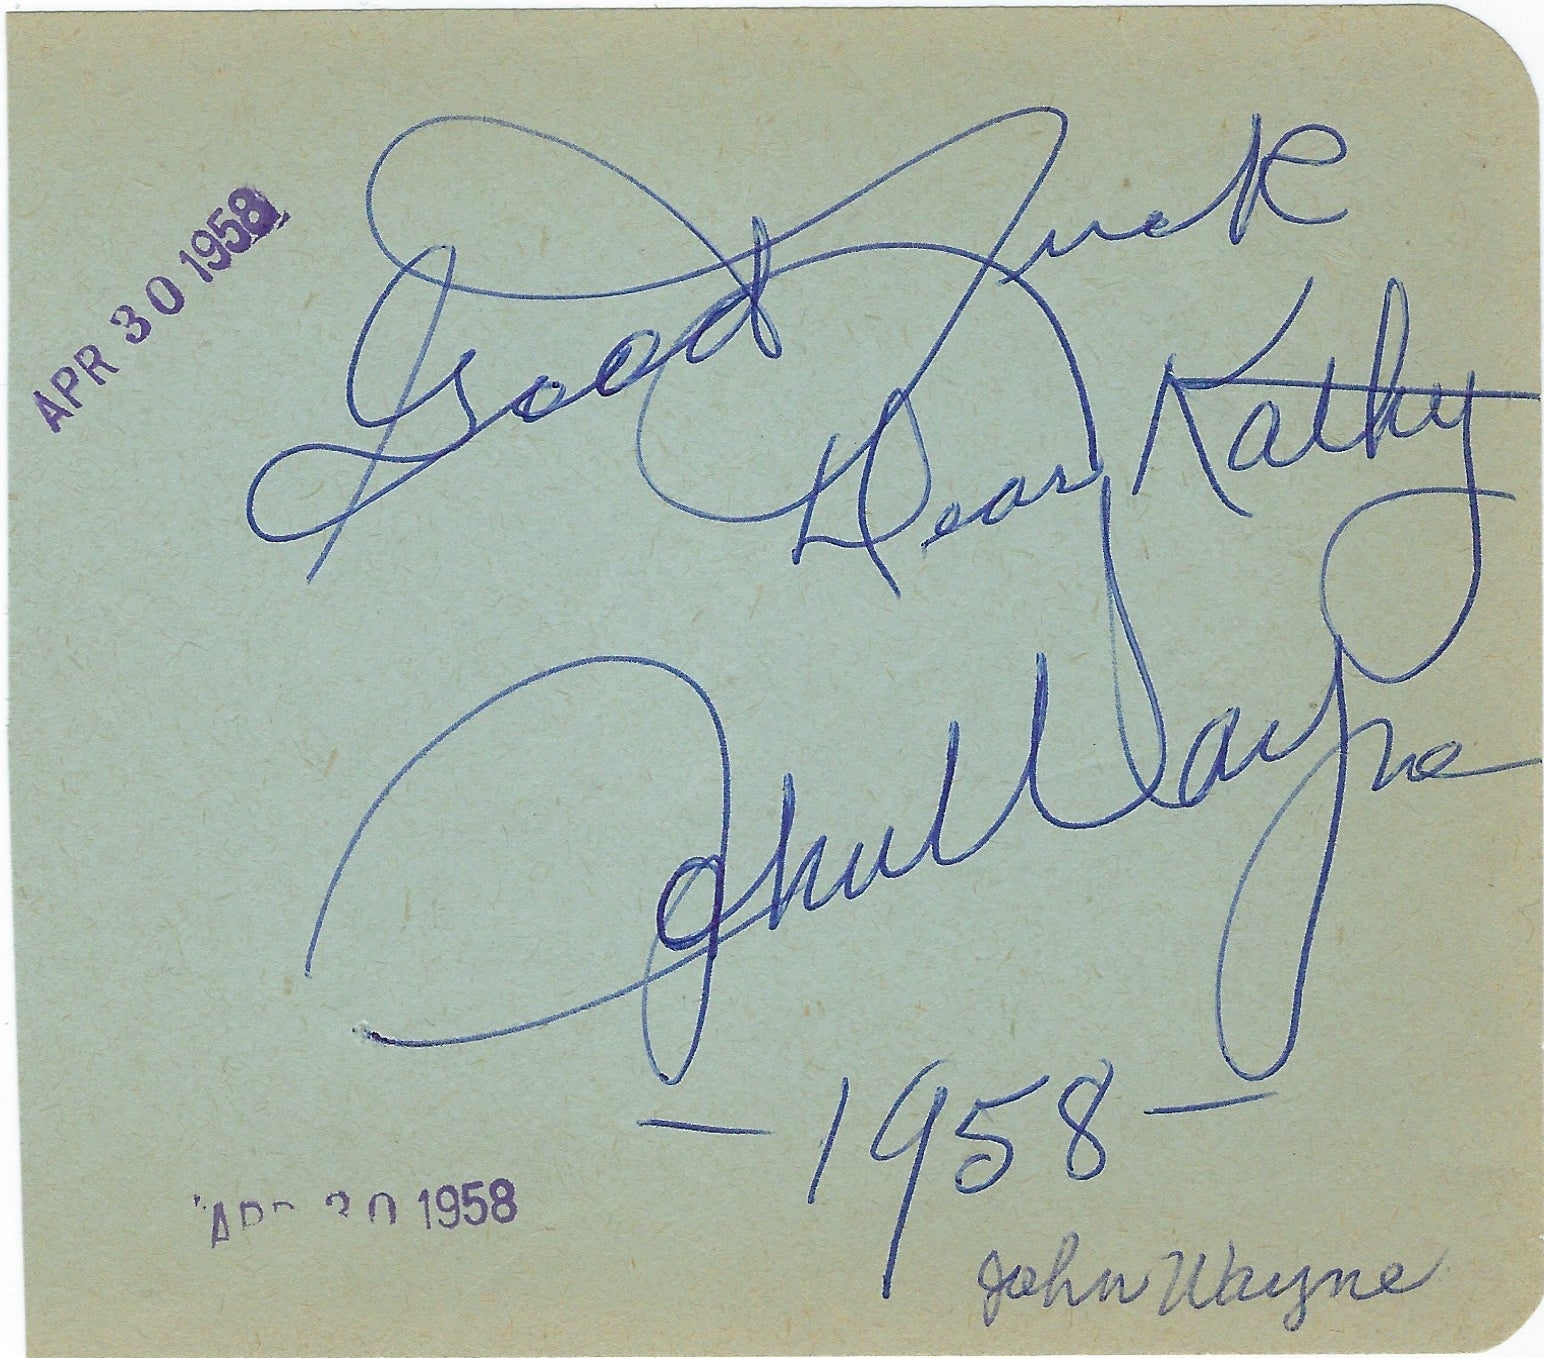 APR 30 1958
Good Luck
Dear Kathy
John Wayne
- 1958 -
APR 30 1958
John Wayne